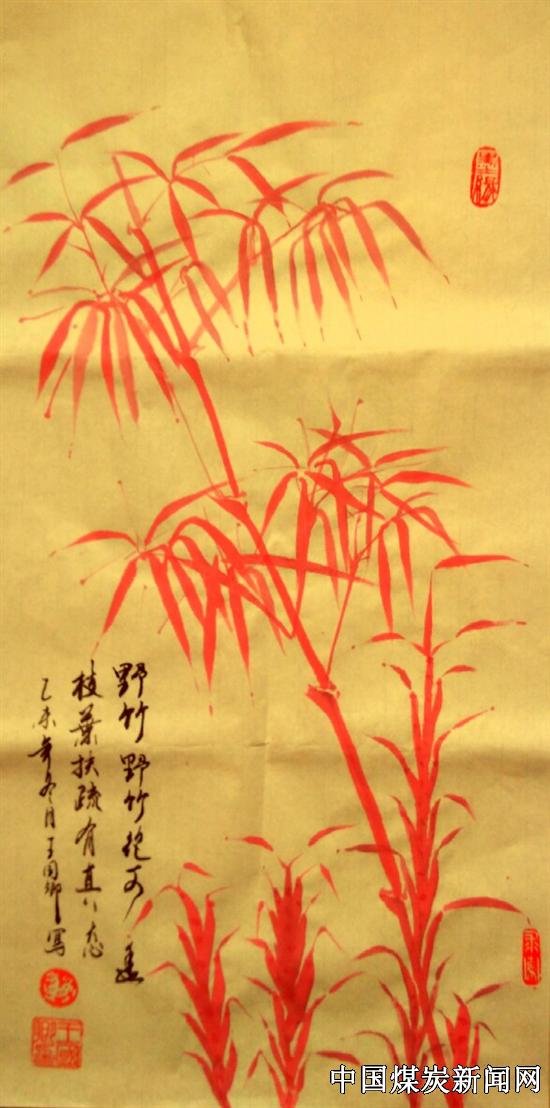 野竹野竹绝可爱
枝葉扶疏有真态
乙未年冬月王国卿寫
中国煤炭新闻网